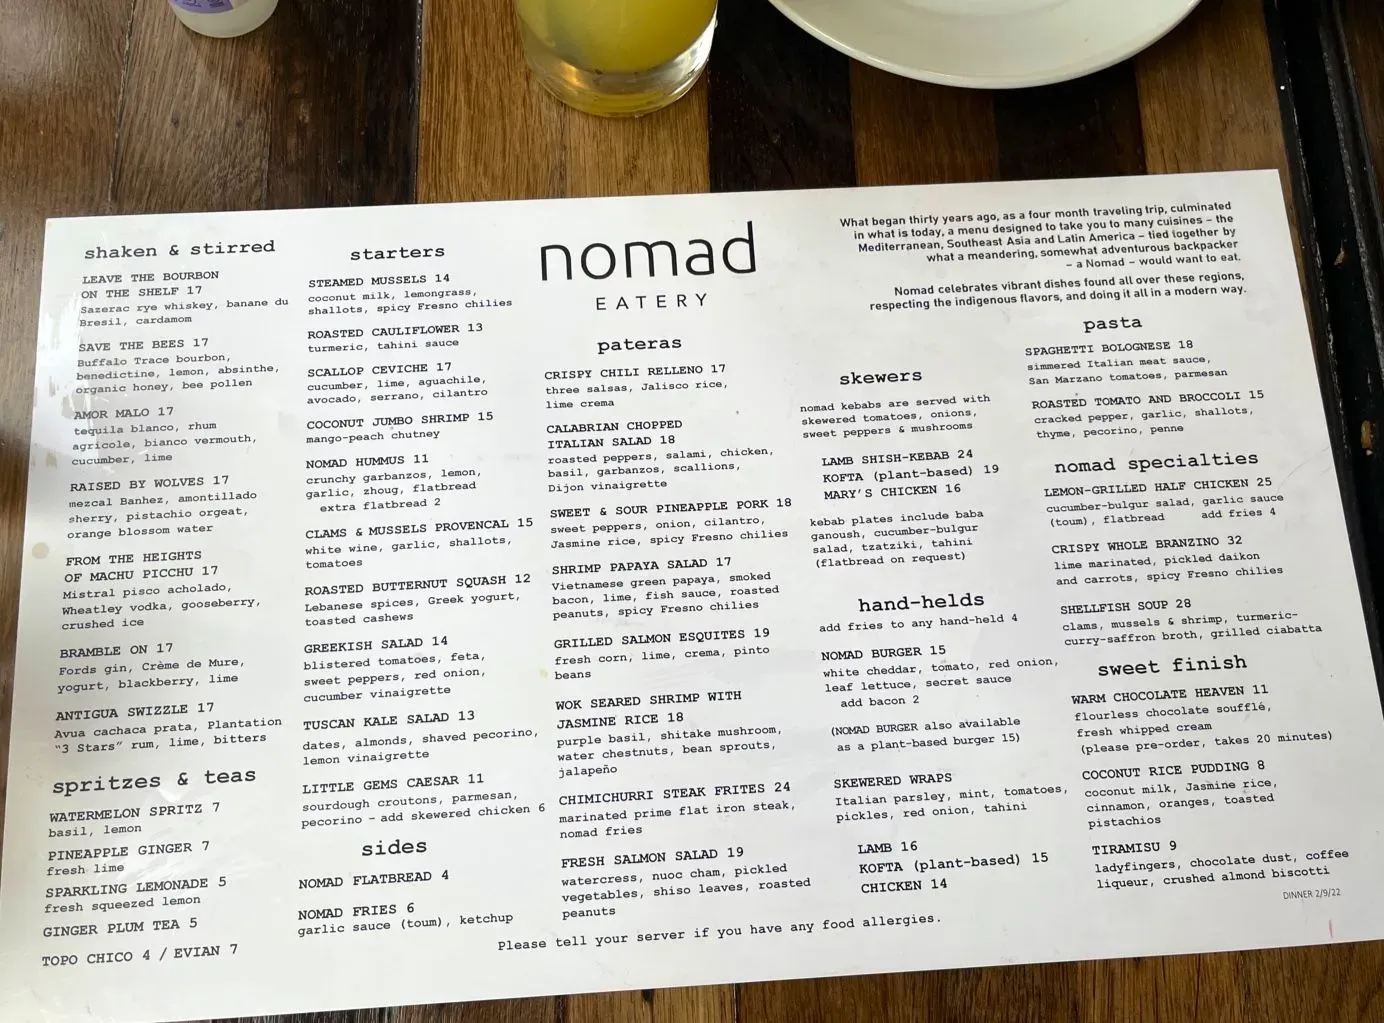 shaken & stirred
LEAVE THE BOURBON
ON THE SHELF 17
Sazerac rye whiskey, banane du
Bresil, cardamom
SAVE THE BEES 17
Buffalo Trace bourbon,
benedictine, lemon, absinthe,
organic honey, bee pollen
AMOR MALO 17
tequila blanco, rhum
agricole, bianco vermouth,
cucumber, lime
RAISED BY WOLVES 17
mezcal Banhez, amontillado
sherry, pistachio orgeat,
orange blossom water
FROM THE HEIGHTS
OF MACHU PICCHU 17
Mistral pisco acholado,
Wheatley vodka, gooseberry,
crushed ice
BRAMBLE ON 17
Fords gin, Crème de Mure,
yogurt, blackberry, lime
ANTIGUA SWIZZLE 17
Avua cachaca prata, Plantation
"3 Stars" rum, lime, bitters
spritzes & teas
WATERMELON SPRITZ 7
basil, lemon
PINEAPPLE GINGER 7
fresh lime
SPARKLING LEMONADE 5
fresh squeezed lemon
GINGER PLUM TEA 5
TOPO CHICO 4 / EVIAN 7
starters
STEAMED MUSSELS 14
coconut milk, lemongrass,
shallots, spicy Fresno chilies
ROASTED CAULIFLOWER 13
turmeric, tahini sauce
SCALLOP CEVICHE 17
cucumber, lime, aguachile,
avocado, serrano, cilantro
COCONUT JUMBO SHRIMP 15
mango-peach chutney
NOMAD HUMMUS 11
crunchy garbanzos, lemon,
garlic, zhoug, flatbread
extra flatbread 2
CLAMS & MUSSELS PROVENCAL 15
white wine, garlic, shallots,
tomatoes
ROASTED BUTTERNUT SQUASH 12
Lebanese spices, Greek yogurt,
toasted cashews
GREEKISH SALAD 14
blistered tomatoes, feta,
sweet peppers, red onion,
cucumber vinaigrette
TUSCAN KALE SALAD 13
dates, almonds, shaved pecorino,
lemon vinaigrette
LITTLE GEMS CAESAR 11
sourdough croutons, parmesan,
pecorino – add skewered chicken 6
sides
NOMAD FLATBREAD 4
NOMAD FRIES 6
garlic sauce (toum), ketchup
nomad
EATERY
pateras
CRISPY CHILI RELLENO 17
three salsas, Jalisco rice,
lime crema
CALABRIAN CHOPPED
ITALIAN SALAD 18
roasted peppers, salami, chicken,
basil, garbanzos, scallions,
Dijon vinaigrette
SWEET & SOUR PINEAPPLE PORK 18
sweet peppers, onion, cilantro,
Jasmine rice, spicy Fresno chilies
SHRIMP PAPAYA SALAD 17
Vietnamese green papaya, smoked
bacon, lime, fish sauce, roasted
peanuts, spicy Fresno chilies
GRILLED SALMON ESQUITES 19
fresh corn, lime, crema, pinto
beans
WOK SEARED SHRIMP WITH
JASMINE RICE 18
purple basil, shitake mushroom,
water chestnuts, bean sprouts,
jalapeño
CHIMICHURRI STEAK FRITES 24
marinated prime flat iron steak,
nomad fries
FRESH SALMON SALAD 19
watercress, nuoc cham, pickled
vegetables, shiso leaves, roasted
peanuts
What began thirty years ago, as a four month traveling trip, culminated
in what is today, a menu designed to take you to many cuisines – the
Mediterranean, Southeast Asia and Latin America – tied together by
what a meandering, somewhat adventurous backpacker
– a Nomad – would want to eat.
Nomad celebrates vibrant dishes found all over these regions,
respecting the indigenous flavors, and doing it all in a modern way.
skewers
nomad kebabs are served with
skewered tomatoes, onions,
sweet peppers & mushrooms
LAMB SHISH-KEBAB 24
KOFTA (plant-based) 19
MARY'S CHICKEN 16
kebab plates include baba
ganoush, cucumber-bulgur
salad, tzatziki, tahini
(flatbread on request)
hand-helds
add fries to any hand-held 4
NOMAD BURGER 15
white cheddar, tomato, red onion,
leaf lettuce, secret sauce
add bacon 2
(NOMAD BURGER also available
as a plant-based burger 15)
SKEWERED WRAPS
Italian parsley, mint, tomatoes,
pickles, red onion, tahini
LAMB 16
KOFTA (plant-based) 15
CHICKEN 14
pasta
SPAGHETTI BOLOGNESE 18
simmered Italian meat sauce,
San Marzano tomatoes, parmesan
ROASTED TOMATO AND BROCCOLI 15
cracked pepper, garlic, shallots,
thyme, pecorino, penne
nomad specialties
LEMON-GRILLED HALF CHICKEN 25
cucumber-bulgur salad, garlic sauce
(toum), flatbread add fries 4
CRISPY WHOLE BRANZINO 32
lime marinated, pickled daikon
and carrots, spicy Fresno chilies
SHELLFISH SOUP 28
clams, mussels & shrimp, turmeric-
curry-saffron broth, grilled ciabatta
sweet finish
WARM CHOCOLATE HEAVEN 11
flourless chocolate soufflé,
fresh whipped cream
(please pre-order, takes 20 minutes)
COCONUT RICE PUDDING 8
coconut milk, Jasmine rice,
cinnamon, oranges, toasted
pistachios
TIRAMISU 9
ladyfingers, chocolate dust, coffee
liqueur, crushed almond biscotti
DINNER 2/9/22
Please tell your server if you have any food allergies.